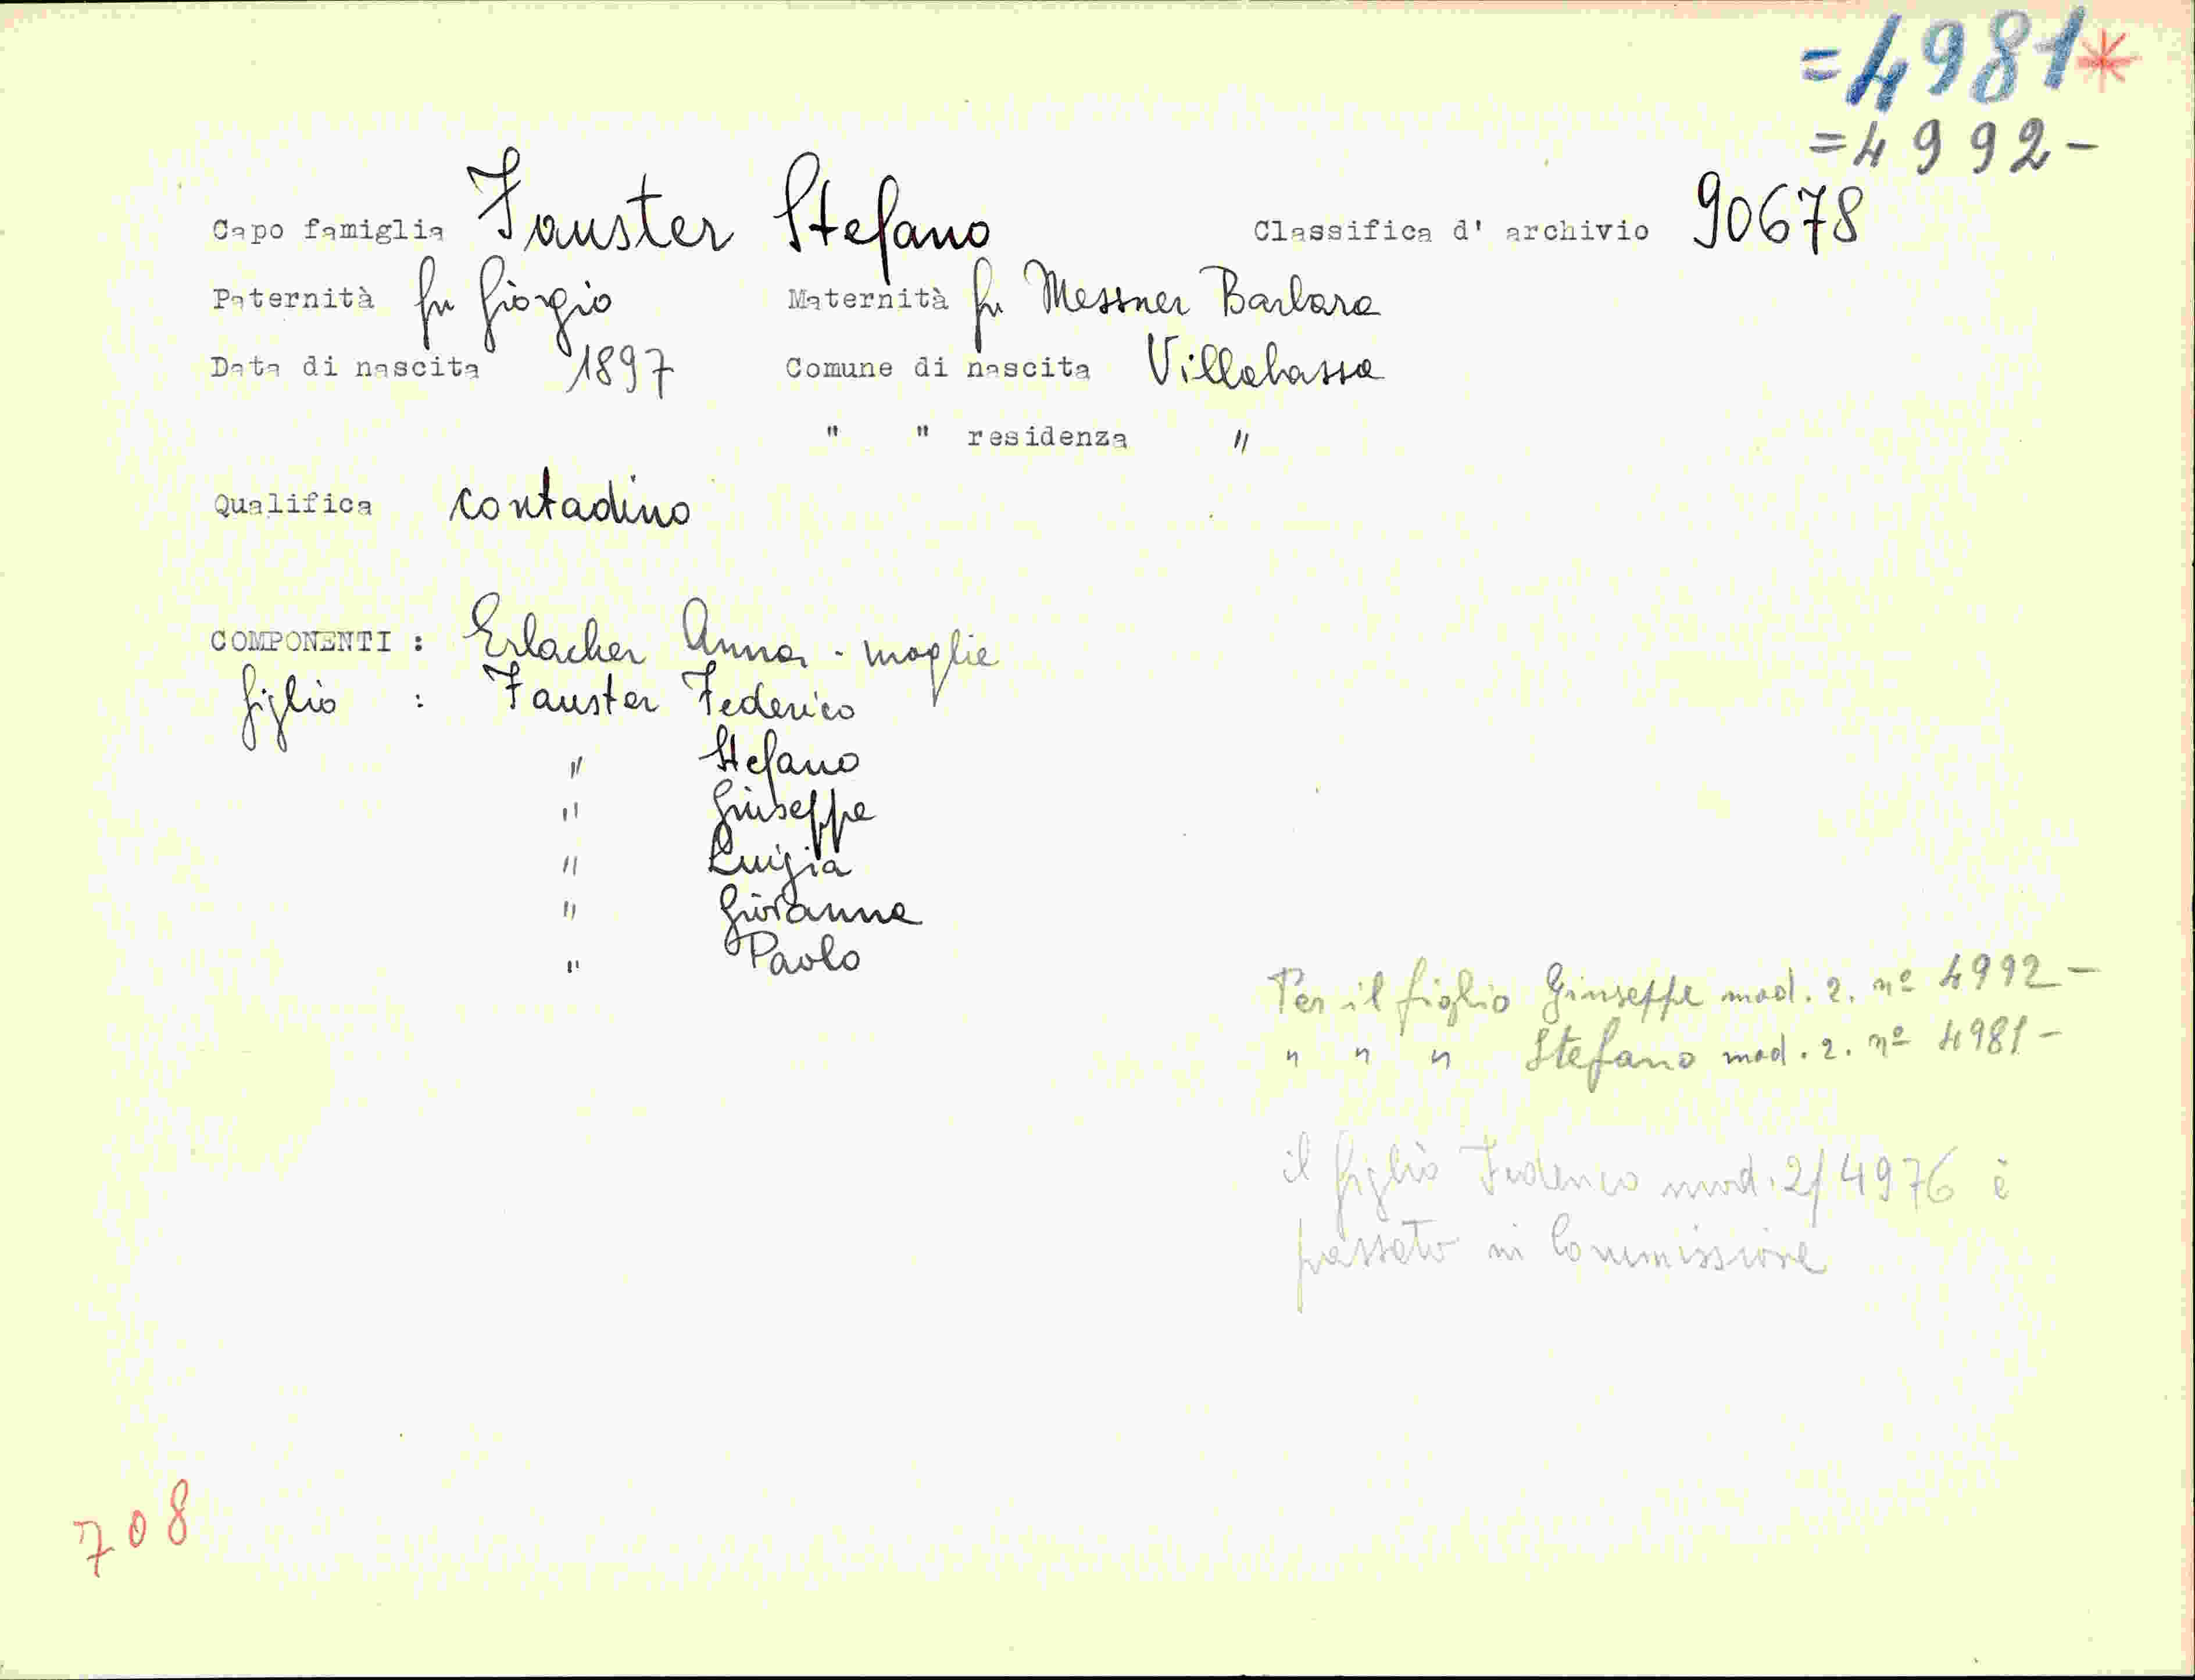 =4981*
=4992-
Capo famiglia Fauster Stefano Classifica d' archivio 90678
Paternità fu Giorgio Maternità fu Messner Barbara
Data di nascita 1897 Comune di nascita Villabassa
" " residenza "
Qualifica contadino
COMPONENTI : Erlacher Anna - moglie
figlio : Fauster Federico
" Stefano
" Giuseppe
" Luigia
" Giovanna
" Paolo
Per il figlio Giuseppe mod. 2. nº 4992-
" " " Stefano mod. 2. nº 4981-
il figlio Federico mod. 2/4976 è
passato in Commissione
708